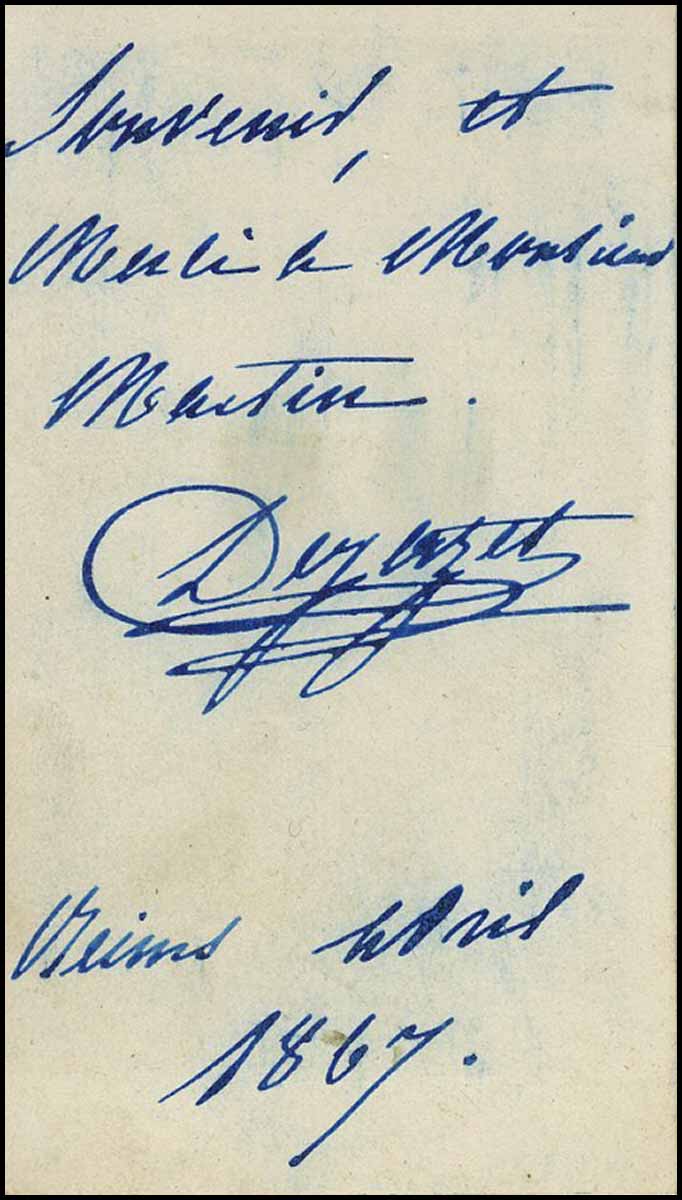 Souvenir, et
Merci a Monsieur
Martin.
Dejazet
Reims Avril
1867.